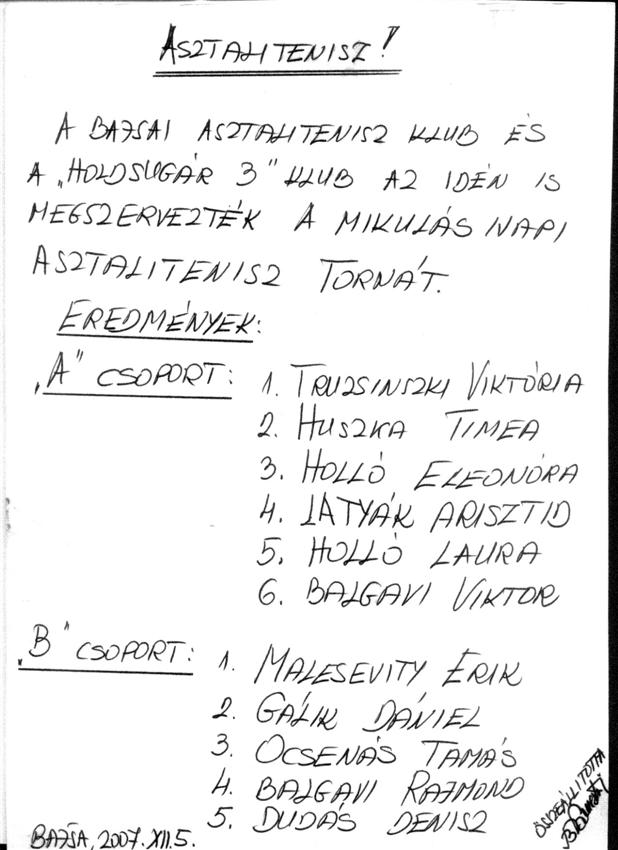 ASZTALITENISZ!
A BAJSAI ASZTALITENISZ KLUB ÉS
A „HOLDSUGÁR 3" KLUB AZ IDÉN IS
MEGSZERVEZTÉK A MIKULÁS NAPI
ASZTALITENISZ TORNÁT.
EREDMÉNYEK:
„A" CSOPORT:
1. TRUZSINSZKI VIKTÓRIA
2. HUSZKA TIMEA
3. HOLLÓ ELEONÓRA
4. LATYÁK ARISZTID
5. HOLLÓ LAURA
6. BALGAVI VIKTOR
„B" CSOPORT:
1. MALESEVITY ERIK
2. GÁLIK DÁNIEL
3. OCSENÁS TAMÁS
4. BALGAVI RAJMOND
5. DUDÁS DENISZ
BAJSA, 2007. XII. 5.
ÖSSZEÁLLITOTTA